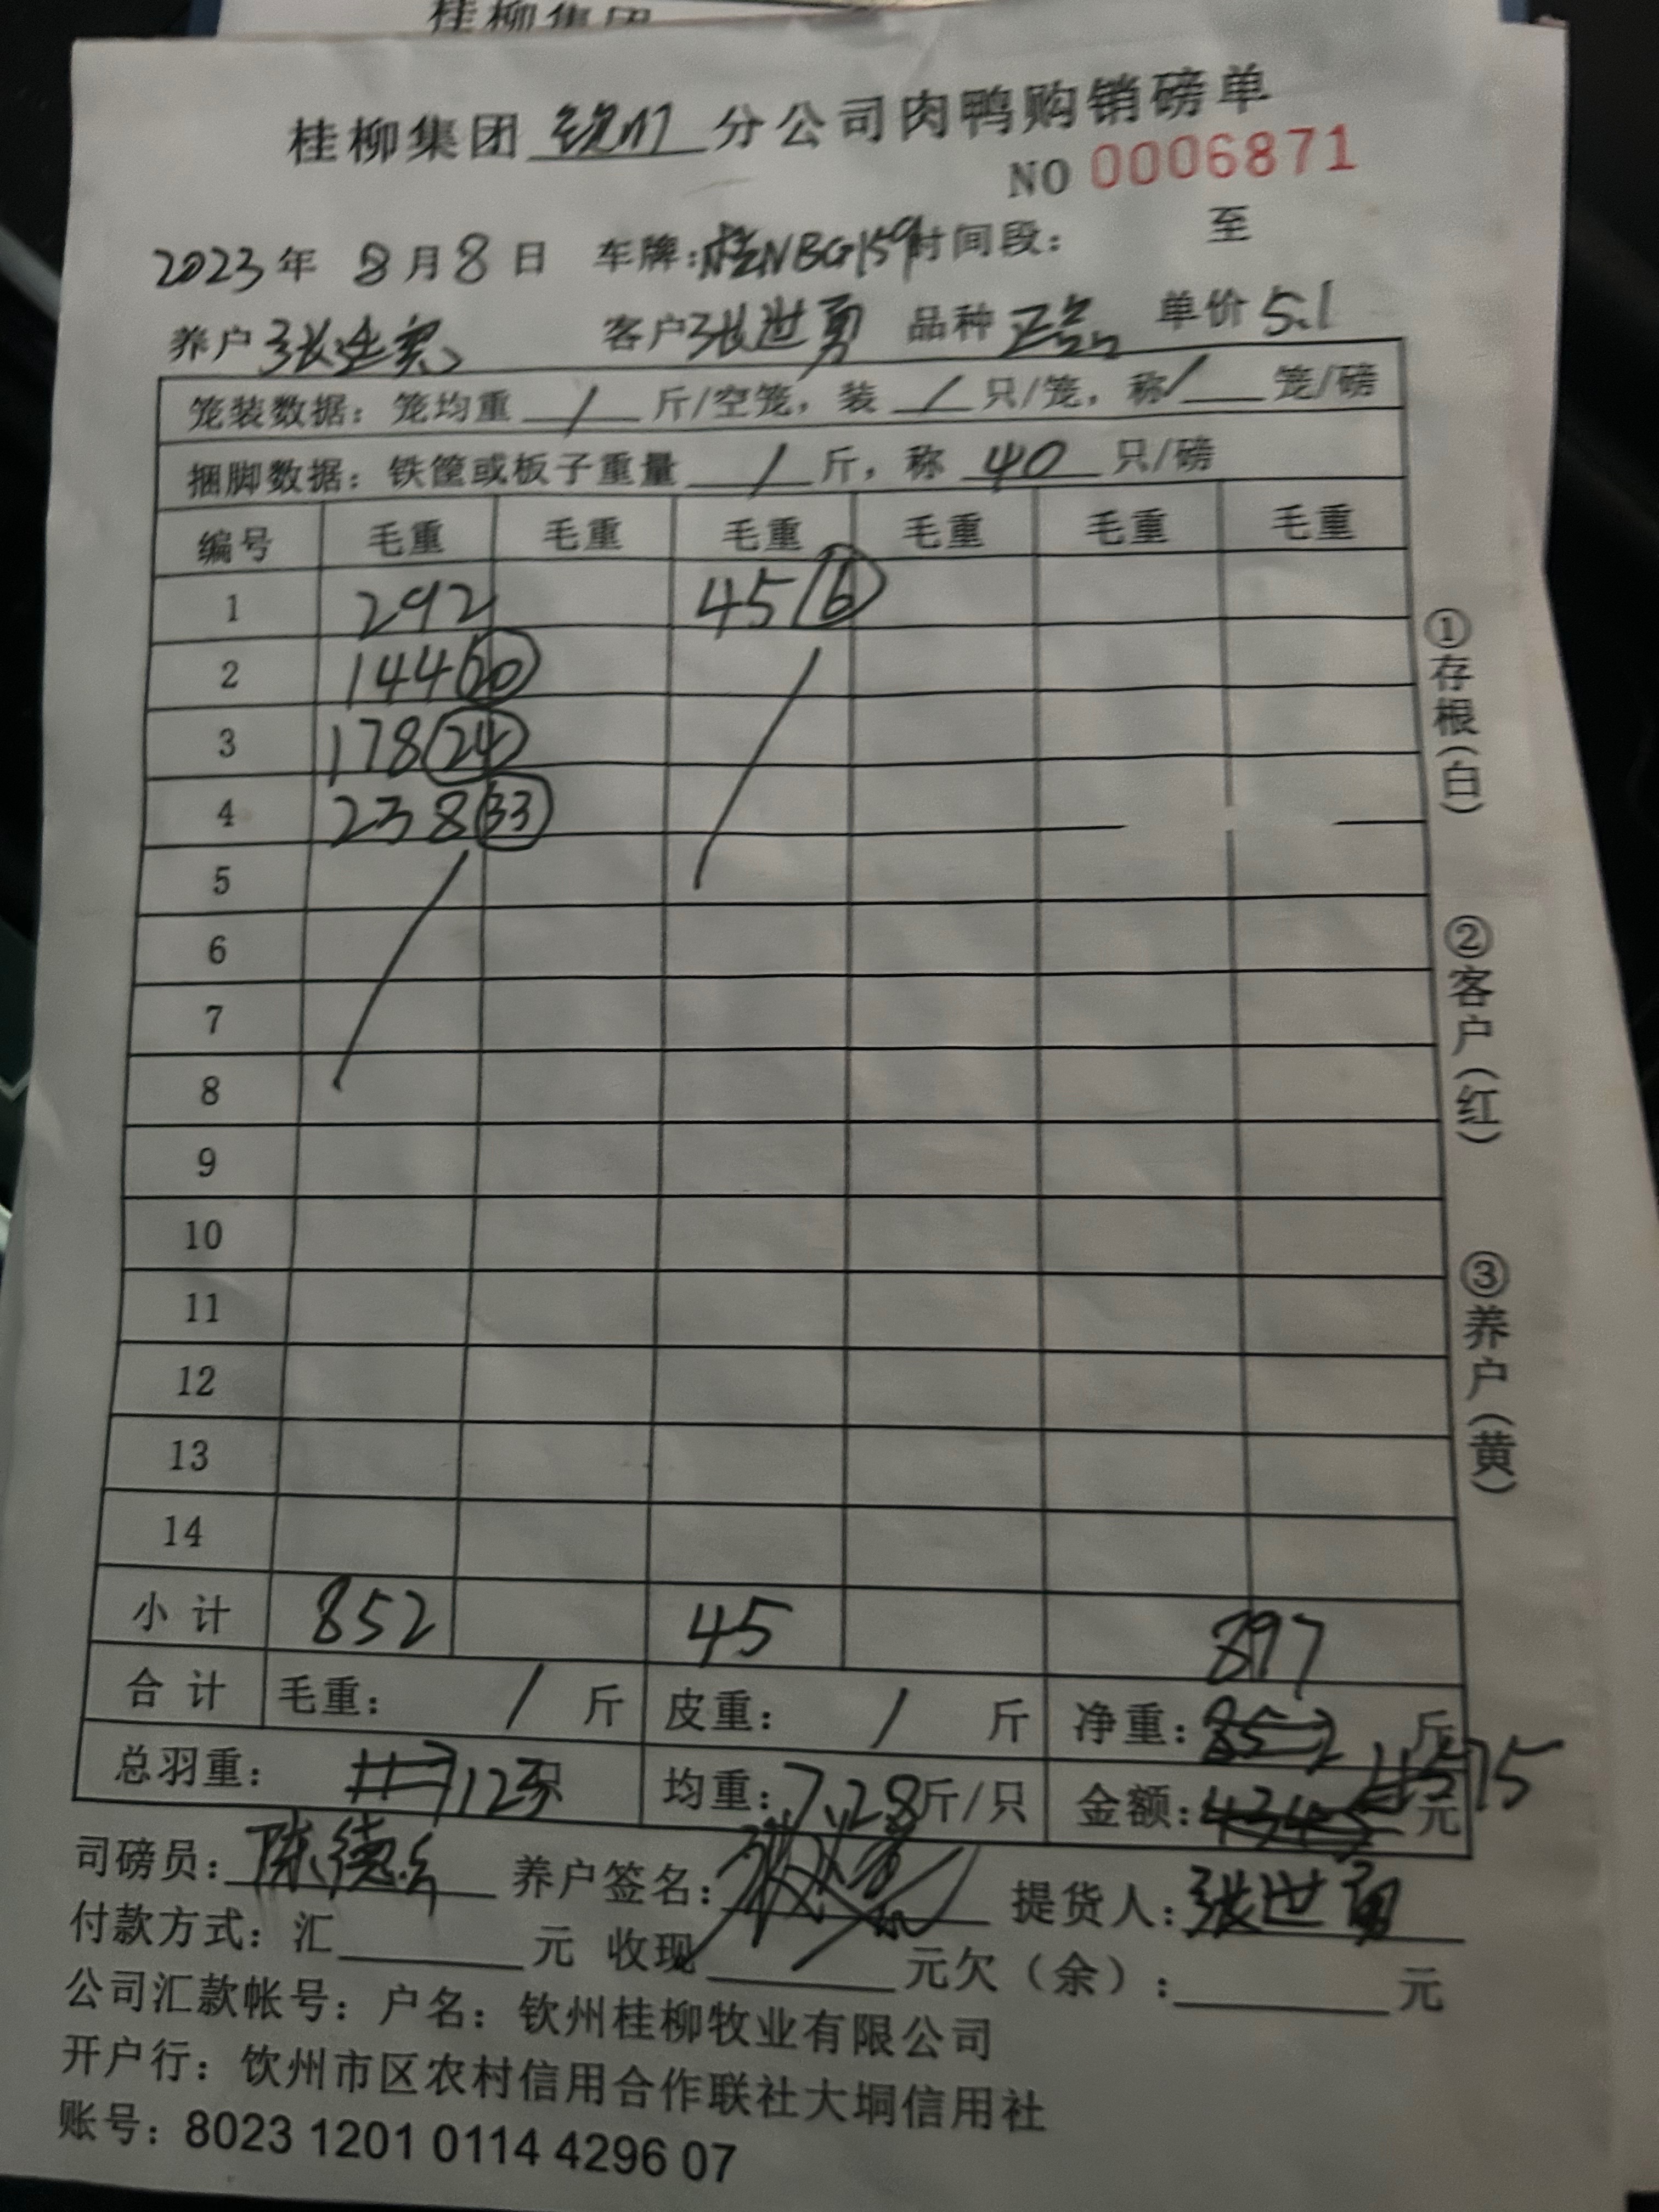 桂柳集团
桂柳集团 钦州 分公司肉鸭购销磅单
NO 0006871
2023年 8月8日 车牌:桂NBG159时间段: 至
养户 客户张世勇 品种 正品 单价5.1
笼装数据: 笼均重 / 斤/空笼, 装 / 只/笼, 称/ 笼/磅
捆脚数据: 铁筐或板子重量 / 斤, 称 40 只/磅
编号 毛重 毛重 毛重 毛重 毛重 毛重
1 292 45(6)
2 144(20)
3 178(24)
4 238(33)
5
6
7
8
9
10
11
12
13
14
小计 852 45 897
合计 毛重: / 斤 皮重: / 斤 净重:852 斤
总羽重: 117 123只 均重:7.28斤/只 金额:4345 4575元
司磅员: 陈德 养户签名: 提货人:张世勇
付款方式: 汇 元 收现 元欠(余): 元
公司汇款帐号: 户名: 钦州桂柳牧业有限公司
开户行: 钦州市区农村信用合作联社大垌信用社
账号: 8023 1201 0114 4296 07
①存根(白)
②客户(红)
③养户(黄)